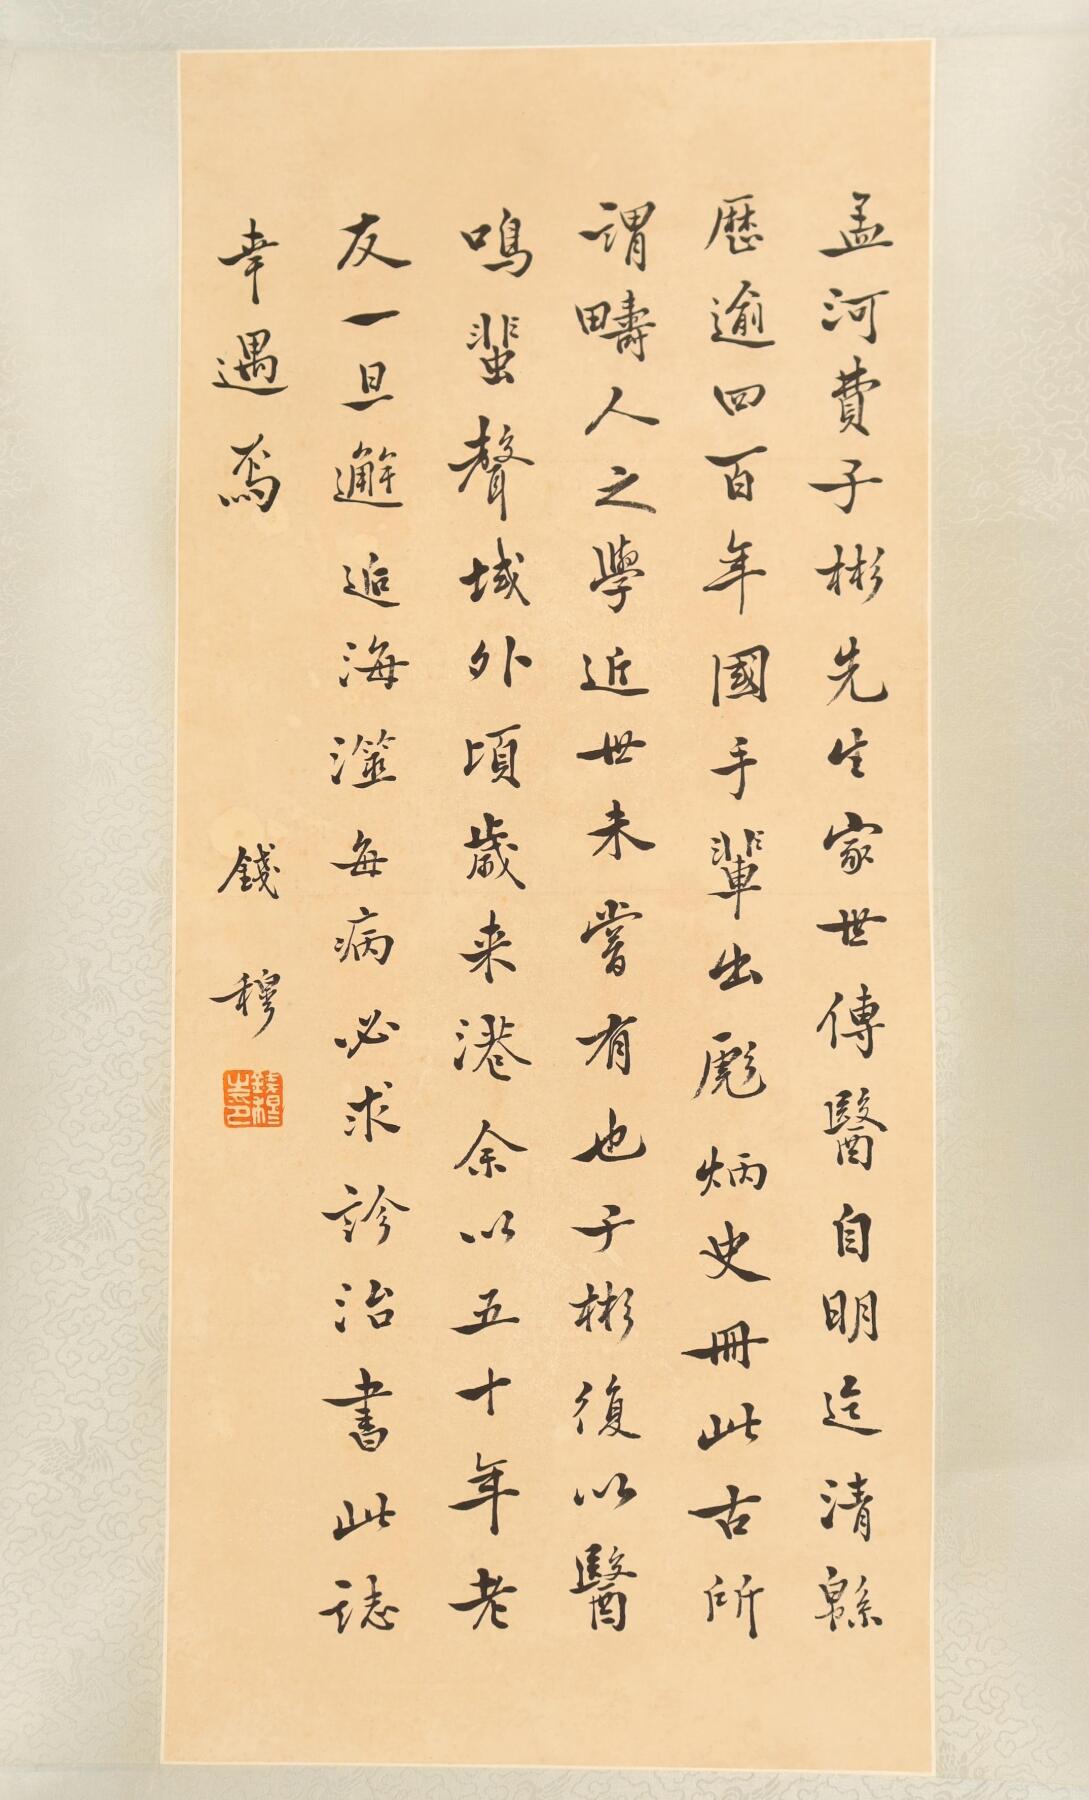 孟河費子彬先生家世傳醫自明迄清緜
歷逾四百年國手輩出彪炳史冊此古所
謂疇人之學近世未嘗有也子彬復以醫
鳴蜚聲域外頃歲来港余以五十年老
友一旦邂逅海澨每病必求診治書此誌
幸遇焉
錢穆
錢穆之印